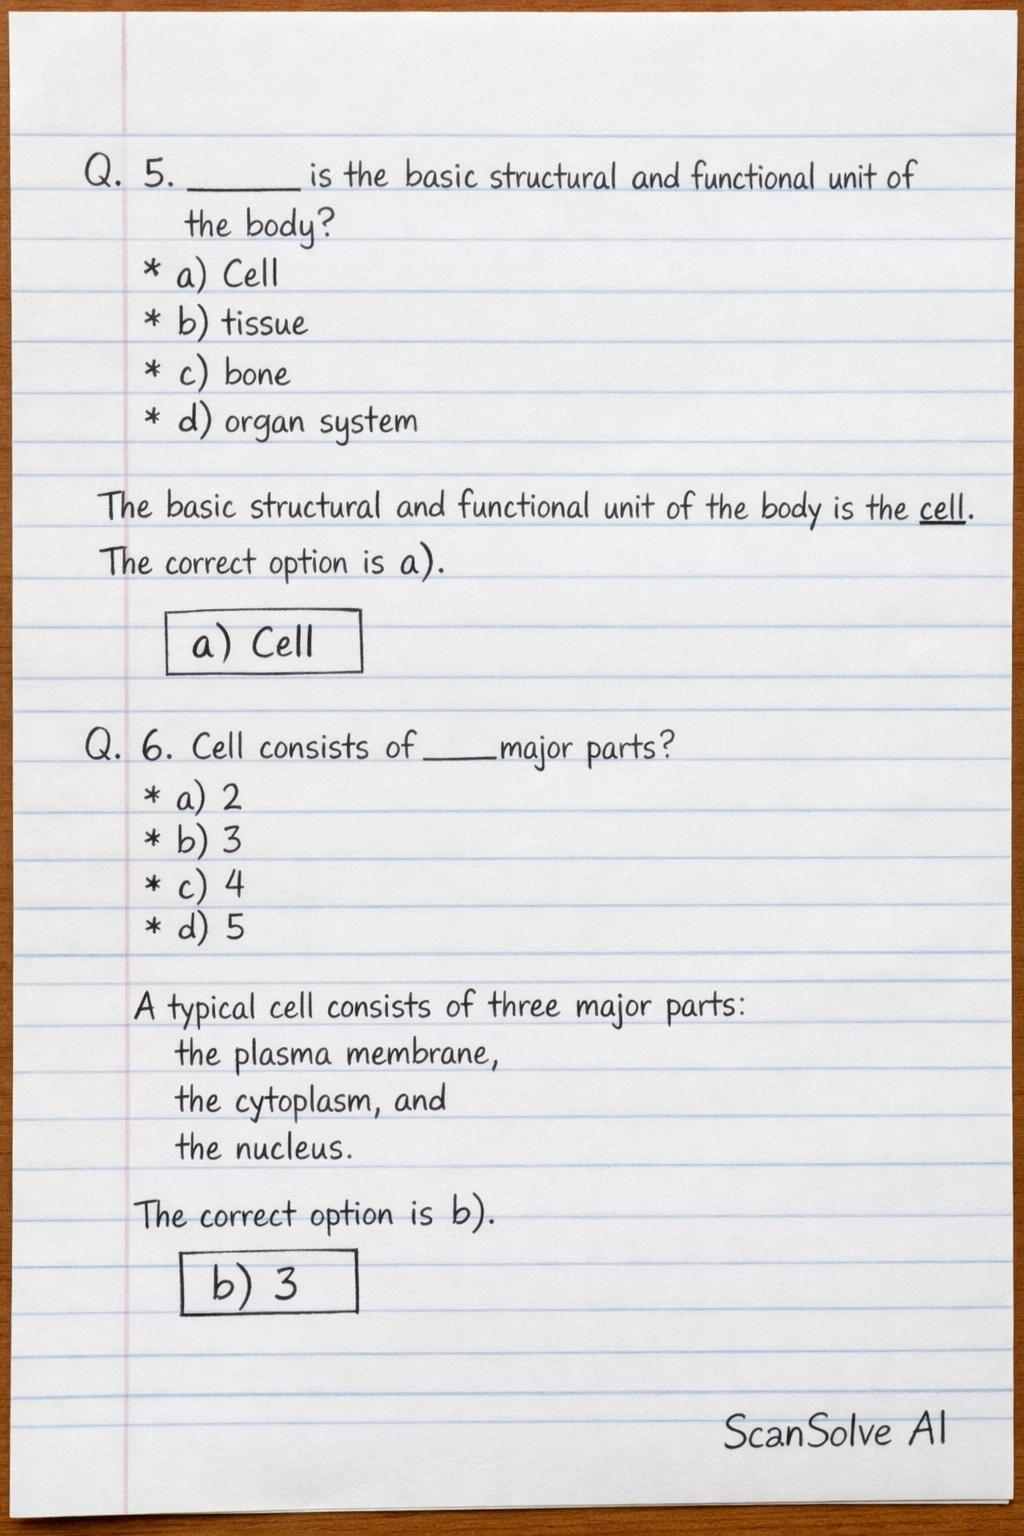 Q. 5. ______ is the basic structural and functional unit of
the body?
* a) Cell
* b) tissue
* c) bone
* d) organ system
The basic structural and functional unit of the body is the cell.
The correct option is a).
a) Cell
Q. 6. Cell consists of ____ major parts?
* a) 2
* b) 3
* c) 4
* d) 5
A typical cell consists of three major parts:
the plasma membrane,
the cytoplasm, and
the nucleus.
The correct option is b).
b) 3
ScanSolve AI